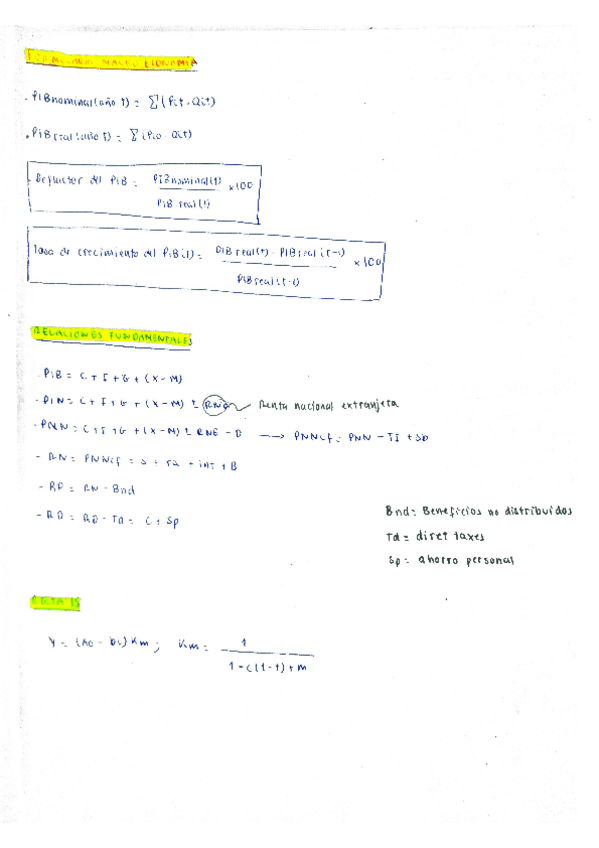 MACROECONOMIA
· PIBnominal(año t) = Σ(Pit · Qit)
· PIBreal(año t) = Σ(Pio · Qit)
Deflactor del PIB = PIBnominal(t) / PIBreal(t) × 100
Tasa de crecimiento del PIB(t) = PIBreal(t) - PIBreal(t-1) / PIBreal(t-1) × 100
RELACIONES FUNDAMENTALES
- PIB = C + I + G + (X-M)
- PIN = C + I + G + (X-M) ± RNE Renta nacional extranjera
- PNN = C + I + G + (X-M) ± RNE - D → PNNcf = PNN - TI + Sb
- RN = PNNcf = S + ra + int + B
- RP = RN - Bnd
- RD = RP - Td = C + Sp
Bnd = Beneficios no distribuidos
Td = diret taxes
Sp = ahorro personal
RECTA IS
Y = (Ao - bi) Km; Km = 1 / 1-c(1-t)+m